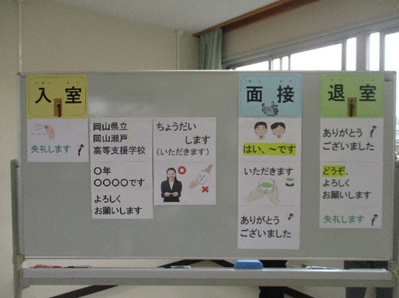 入室
失礼します
岡山県立
岡山瀬戸
高等支援学校
○年
○○○○です
よろしく
お願いします
ちょうだい
します
(いただきます)
面接
はい、～です
いただきます
ありがとう
ございました
退室
ありがとう
ございました
どうぞ、
よろしく
お願いします
失礼します